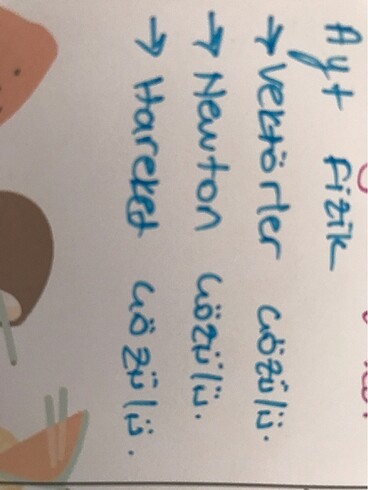 Ayt Fizik
→ Vektörler çözülü.
→ Newton çözülü.
→ Hareket çözülü.